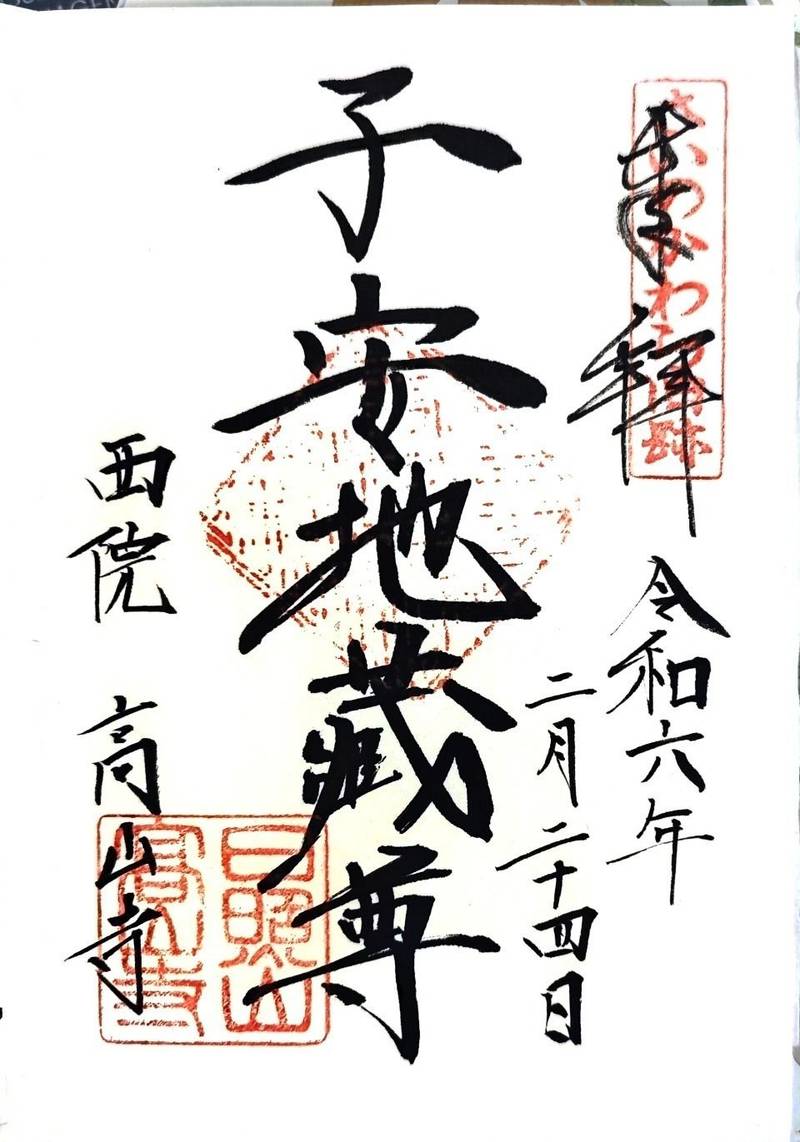 さいのかわら旧跡
奉拝
令和六年
二月二十四日
子安地蔵尊
西院 高山寺
日照山
高山寺